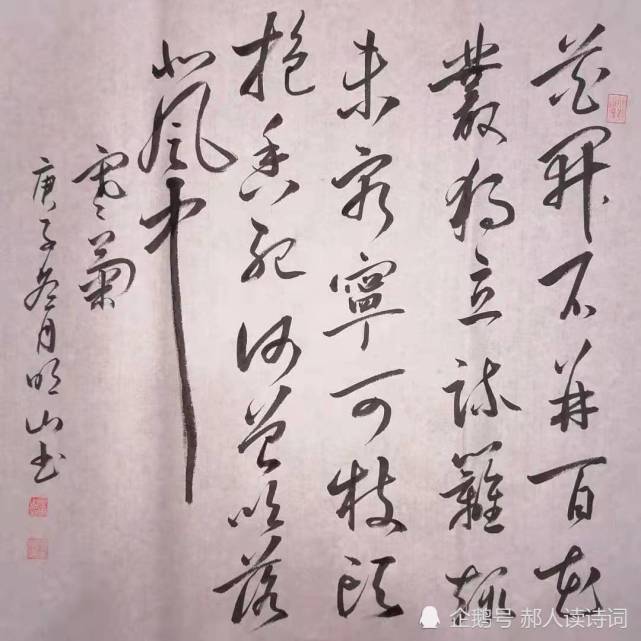 花開不并百花
叢獨立疏籬趣
未窮寧可枝頭
抱香死何曾吹落
北風中
寒菊
庚子冬月明山书
企鹅号 郝人读诗词